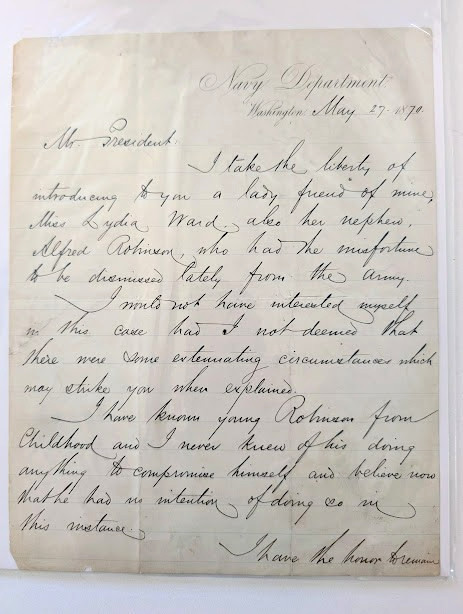 Navy Department
Washington, May 27. 1870.
Mr. President.
I take the liberty of
introducing to you a lady friend of mine,
Miss Lydia Ward, also her nephew,
Alfred Robinson, who had the misfortune
to be dismissed lately from the Army.
I would not have interested myself
in this case had I not deemed that
there were some extenuating circumstances which
may strike you when explained.
I have known young Robinson from
Childhood and I never knew of his doing
anything to compromise himself and believe now
that he had no intention of doing so in
this instance.
I have the honor to remain